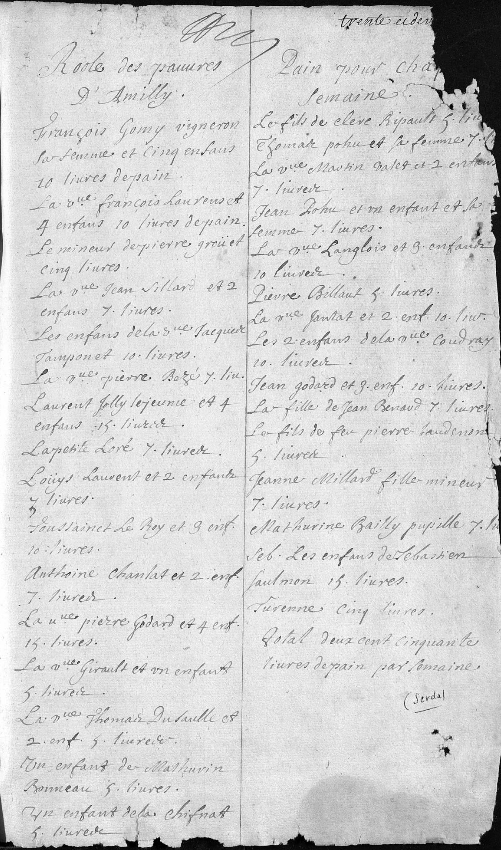 trente et deu
Roole des pauures
D'Amilly.
François Gomy vigneron
sa femme et cinq enfans
10 livres de pain.
La vue françois Laurens et
4 enfans 10 livres de pain.
Le mineur de pierre greu et
cinq livres.
La vue Jean Sillard et 2
enfans 7. livres.
Les enfans de la vue Jacques
Tamponet 10. livres.
La vue pierre Bozé 7 liu.
Laurent Jolly le jeune et 4
enfans 15. livres.
La petite Loré 7. livres
Loüys Laurent et 2 enfans
7 livres.
Toussainct Le Roy et 3 enf.
10. livres.
Anthoine chantat et 2 enf.
7. livres.
La vue pierre Godard et 4 enf.
15. livres.
La vue Girault et vn enfant
5. livres.
La vue Thomas Dusaulle et
2. enf. 5. livres.
Vn enfant de Mathurin
Bonneau 5. livres.
Vn enfant de la chifnat
5. livres
Pain pour cha
Semaine
Le fils de clere Ripault 5. liu
Thomas pohu et sa femme 7. l
La vue Martin Valet et 2 enfans
7. livres.
Jean Pohu et vn enfant et sa
femme 7. livres.
La vue Langlois et 3. enfans
10 livres.
Pierre Billaut 5. livres
La vue Jantat et 2. enf 10. liu.
Les 2 enfans de la vue Coudray
10. livres.
Jean godard et 3. enf. 10. livres.
La fille de Jean Benaud 7. livres.
Le fils de feu pierre
5. livres
Jeanne Millard fille mineur
7. livres.
Mathurine Bailly pupille 7. l
Seb. Les enfans de Sebastien
Saulmon 15. livres.
Turenne Cinq livres.
Total deux cent cinquante
livres de pain par semaine.
(Serda)